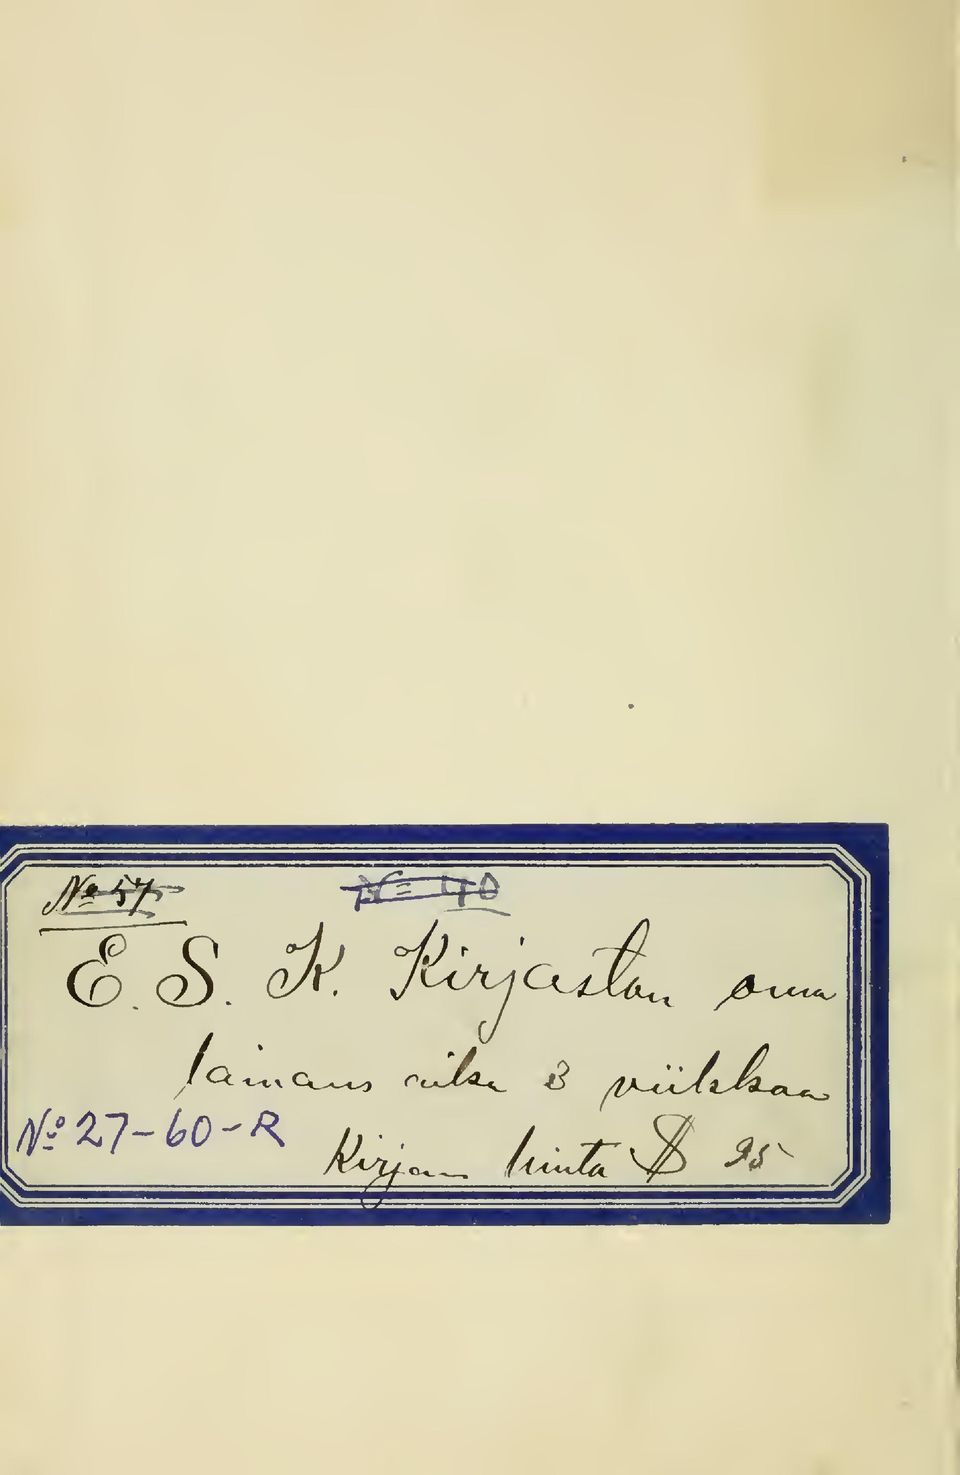 № 57 № 40
E. S. K. Kirjaston oma
lainaus aika 3 viikkoa
№ 27-60-R
Kirjan hinta $ 95